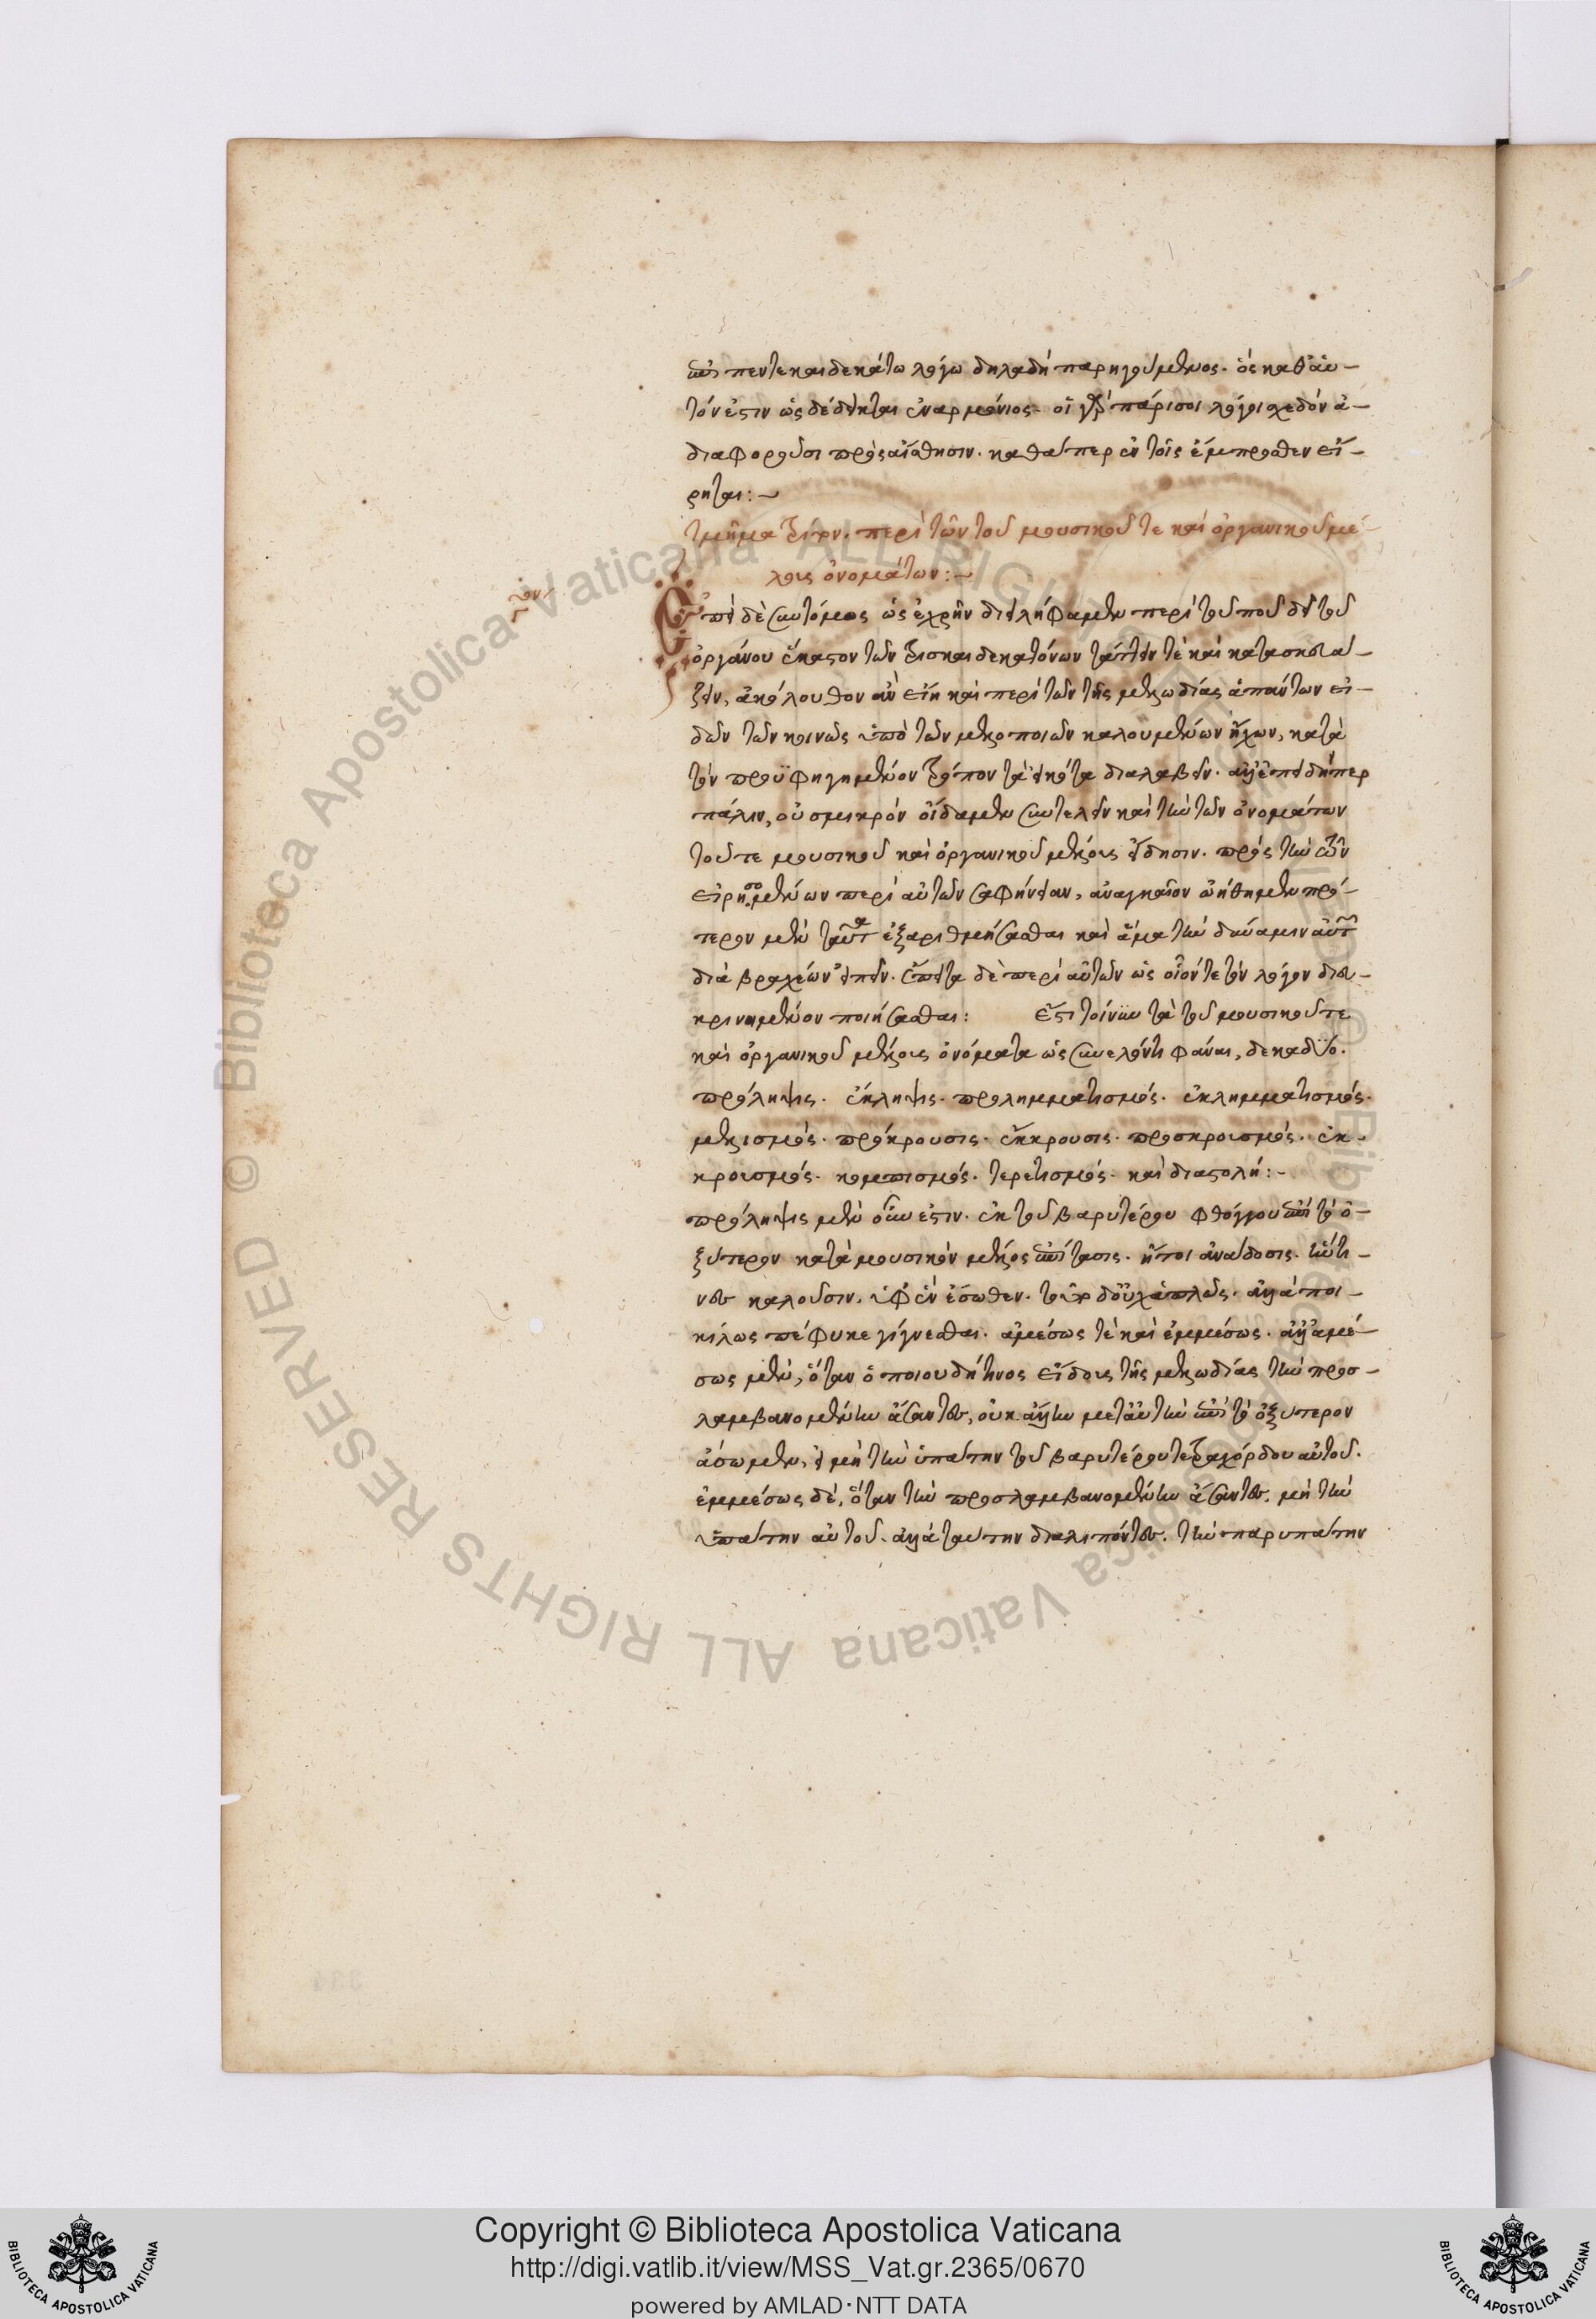 ἐπιπεντεκαιδεκάτω λόγω δηλαδή παρηγούμενος. ὅς καθ' αὑ-
τόν ἐστιν ὡς δέδεικται ἐναρμόνιος. οἱ γὰρ πάρισοι λόγοι σχεδόν ἀ-
διαφοροῦσι πρὸς αἴσθησιν. καθάπερ ἐν τοῖς ἔμπροσθεν εἴ-
ρηται:~
τμῆμα τρίτον. περὶ τῶν τοῦ μουσικοῦ τε καὶ ὀργανικοῦ μέ-
λους ὀνομάτων:~
Ἐπεὶ δὲ συντόμως ὡς ἐχρῆν διειλήφαμεν περὶ τοῦ ποῦ δεῖ τοῦ
ὀργάνου ἕκαστον τῶν τρισκαιδεκατόνων τάττειν τὲ καὶ κατασκευά-
ζειν, ἀκόλουθον ἂν εἴη καὶ περὶ τῶν τῆς μελωδίας ἁπάντων εἰ-
δῶν τῶν κοινῶς ὑπὸ τῶν μελοποιῶν καλουμένων ἤχων, κατὰ
τὸν προϋφηγημένον τρόπον τὰ εἰκότα διαλαβεῖν. ἀλλ' ἐπειδήπερ
πάλιν, οὐ σμικρὸν οἴδαμεν συντελεῖν καὶ τὴν τῶν ὀνομάτων
τοῦ τε μουσικοῦ καὶ ὀργανικοῦ μέλους εἴδησιν. πρὸς τὴν τῶν
εἰρησομένων περὶ αὐτῶν σαφήνειαν, ἀναγκαῖον ᾠήθημεν πρό-
τερον μὲν ταῦτα ἐξαριθμήσασθαι καὶ ἅμα τὴν δύναμιν αὐτῶν
διὰ βραχέων εἰπεῖν. ἔπειτα δὲ περὶ αὐτῶν ὡς οἷόν τε τὸν λόγον διευ-
κρινημένον ποιήσασθαι: Ἔστι τοίνυν τὰ τοῦ μουσικοῦ τε
καὶ ὀργανικοῦ μέλους ὀνόματα ὡς συνελόντι φάναι, δεκαδύο.
πρόληψις. ἔκληψις. προλημματισμός. ἐκλημματισμός.
μελισμός. πρόκρουσις. ἔκκρουσις. προσκρουσμός. ἐκ-
κρουσμός. κομπισμός. τερετισμός. καὶ διαστολή:-
πρόληψις μὲν οὖν ἐστιν. ἐκ τοῦ βαρυτέρου φθόγγου ἐπὶ τὸ ὀ-
ξύτερον κατὰ μουσικὸν μέλος ἐπίτασις. ἤτοι ἀνάδοσις. ἥν τι-
νες καλοῦσιν, ὑφ' ἓν ἔσωθεν. τοῦτο δ' οὐχ ἁπλῶς. ἀλλὰ ποι-
κίλως πέφυκε γίγνεσθαι. ἀμέσως τὲ καὶ ἐμμέσως. ἀλλ' ἀμέ-
σως μὲν, ὅταν ὁποιουδήτινος εἴδους τῆς μελωδίας τὴν προσ-
λαμβανομένην ᾄσαντες, οὐκ ἄλλην μετ' αὐτὴν ἐπὶ τὸ ὀξύτερον
ᾄσωμεν, εἰ μὴ τὴν ὑπάτην τοῦ βαρυτέρου τετραχόρδου αὐτοῦ.
ἐμμέσως δὲ, ὅταν τὴν προσλαμβανομένην ᾄσαντες, μὴ τὴν
ὑπάτην αὐτοῦ. ἀλλὰ ταύτην διαλιπόντες. τὴν παρυπάτην
Copyright © Biblioteca Apostolica Vaticana
http://digi.vatlib.it/view/MSS_Vat.gr.2365/0670
powered by AMLAD·NTT DATA